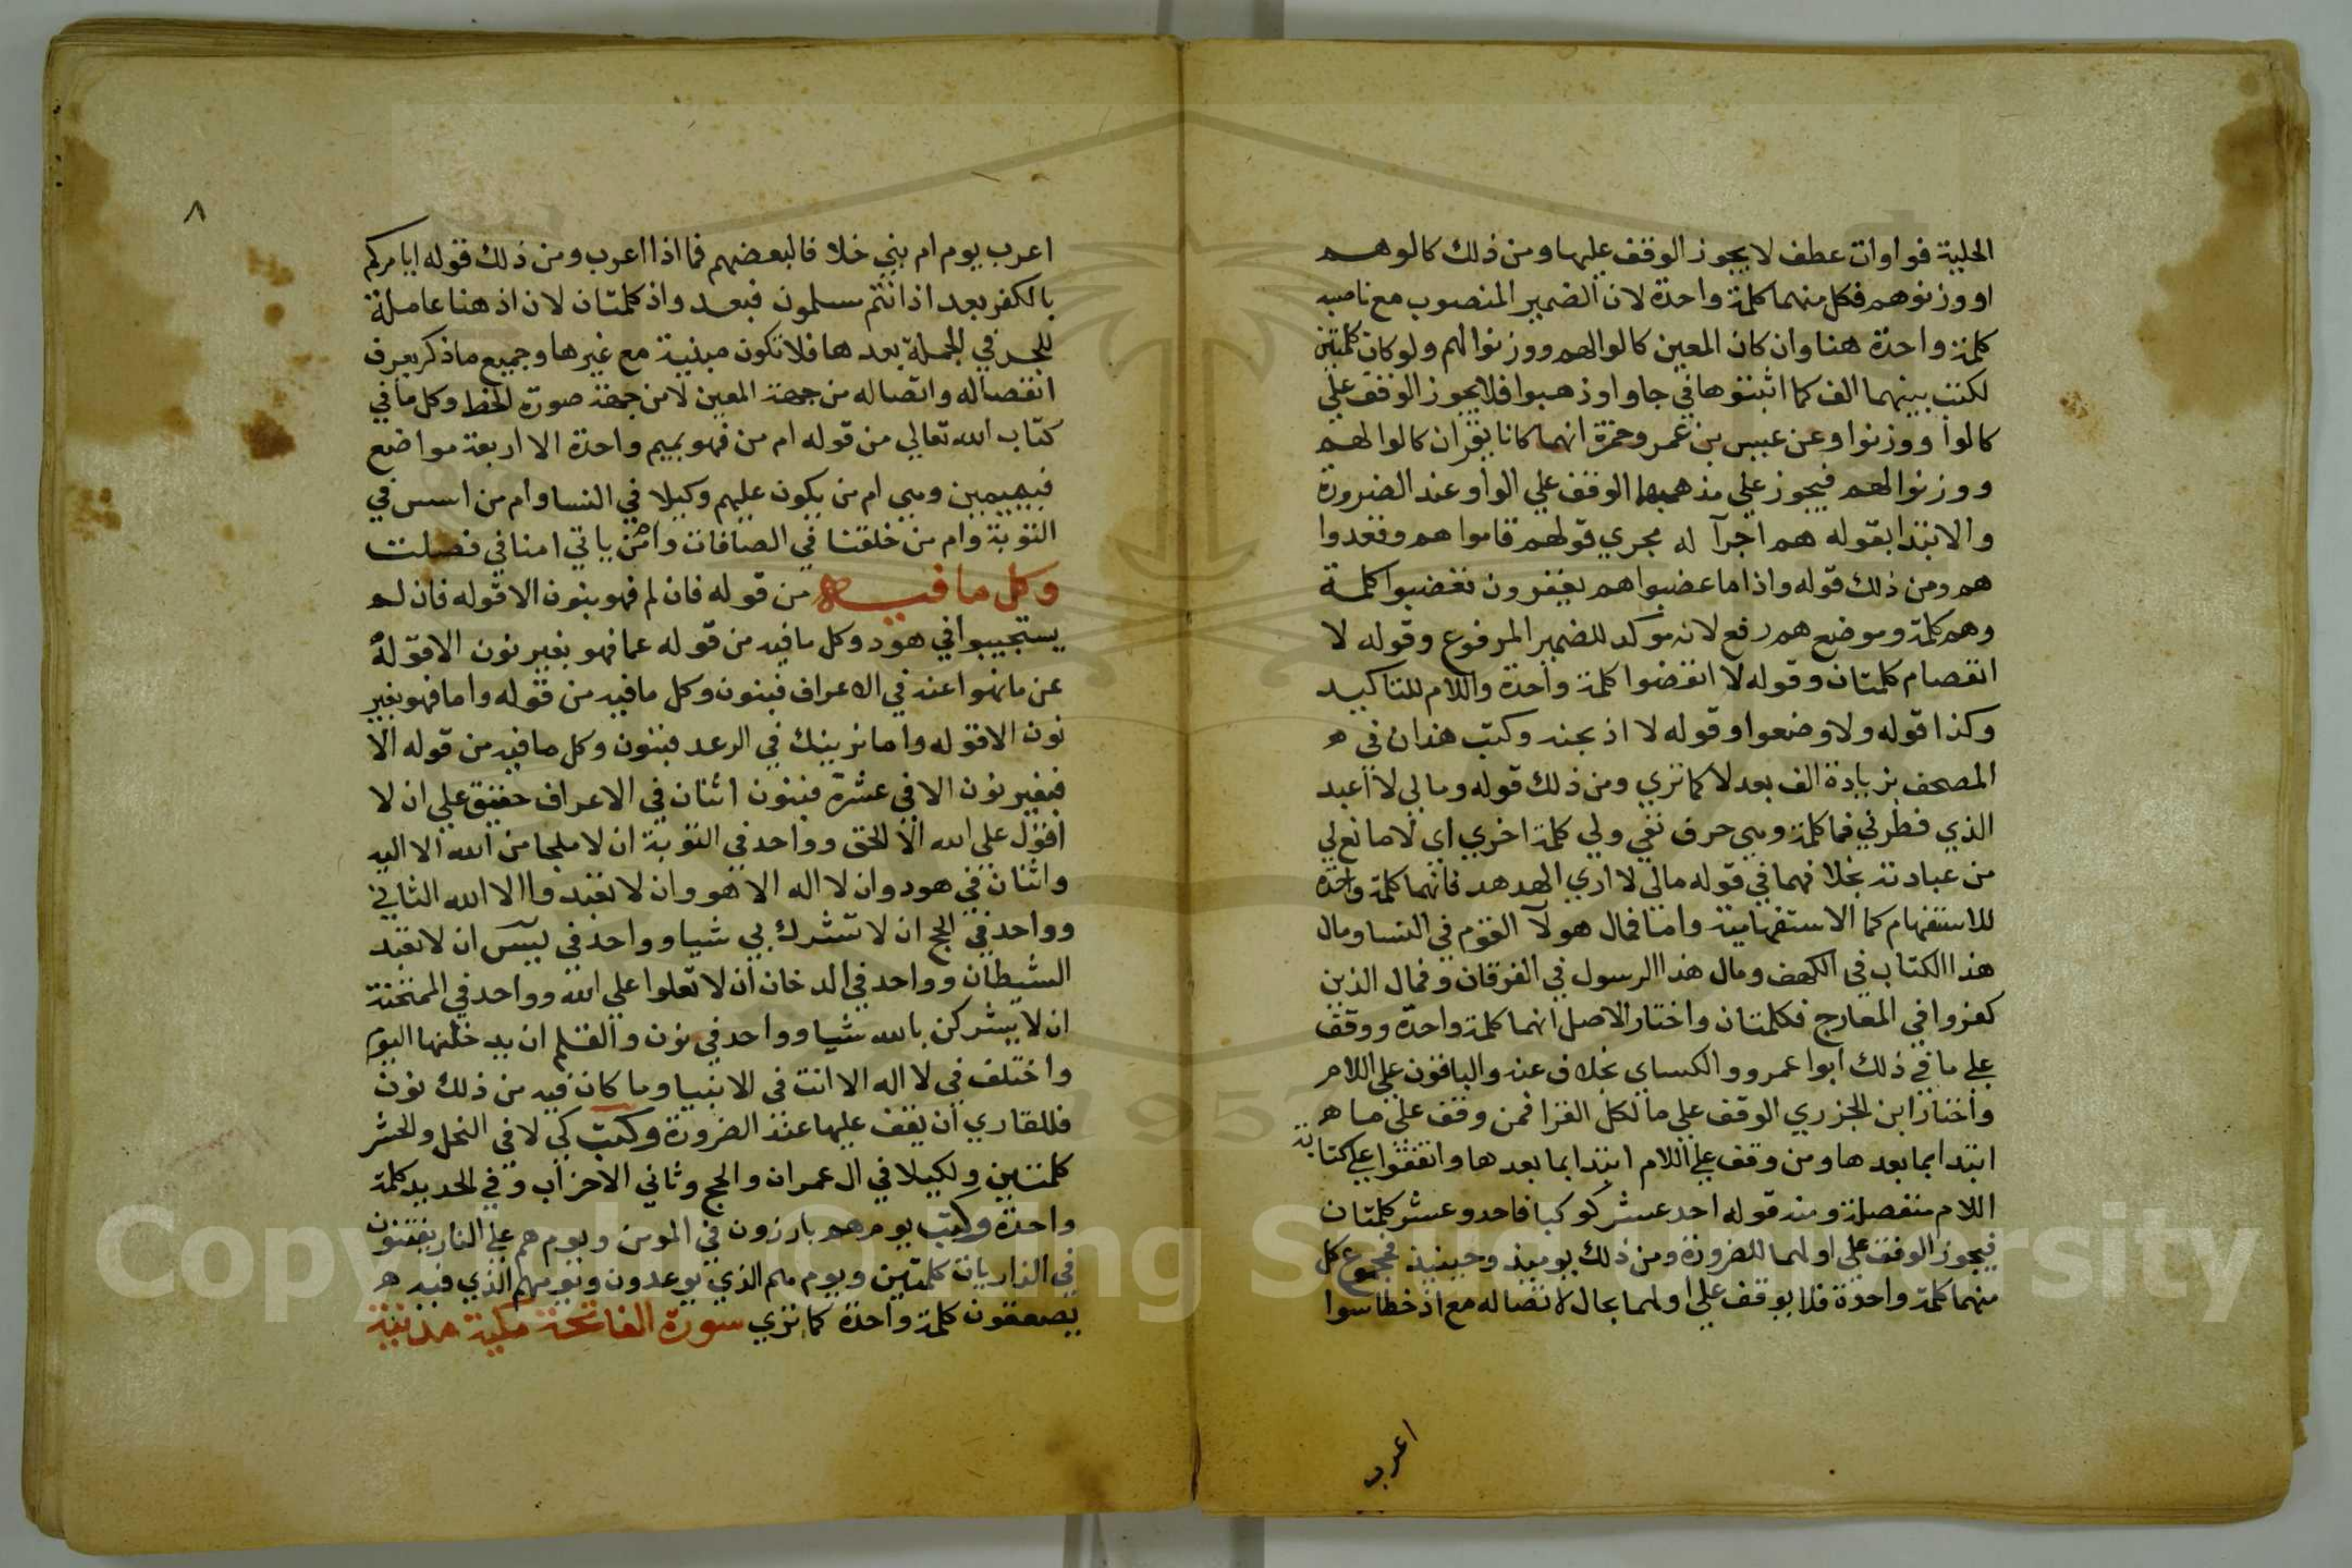 الحلبية فواوات عطف لا يجوز الوقف عليها ومن ذلك كالوهم
او وزنوهم فكل منهما كلمة واحدة لان الضمير المنصوب مع ناصبه
كلمة واحدة هنا وان كان المعين كالوا لهم ووزنوا لهم ولو كان كلمتين
لكتب بينهما الف كما اثبتوها في جاوا وذهبوا فلا يجوز الوقف علي
كالوا ووزنوا وعن عيسي بن عمر وحمزة انهما كانا يقران كالوا لهم
ووزنوا لهم فيجوز علي مذهبهما الوقف علي الواو عند الضرورة
والابتدا بقوله هم اجرآ له مجري قولهم قاموا هم وقعدوا
هم ومن ذلك قوله واذا ما غضبوا هم يغفرون فغضبوا كلمة
وهم كلمة وموضع هم رفع لانه موكد للضمير المرفوع وقوله لا
انفصام كلمتان وقوله لا انفضوا كلمة واحدة واللام للتاكيد
وكذا قوله ولاوضعوا وقوله لا اذبحنه وكتب هذان في ه
المصحف بزيادة الف بعد لا كما تري ومن ذلك قوله ومالي لا اعبد
الذي فطرني فما كلمة وهي حرف نفي ولي كلمة اخري اي لا مانع لي
من عبادته بخلا فهما في قوله مالي لا اري الهدهد فانهما كلمة واحدة
للاستفهام كما الاستفهامية واما فمال هولآ القوم في النسا ومال
هذا الكتاب في الكهف ومال هذا الرسول في الفرقان وفمال الذين
كفروا في المعارج فكلمتان واختار الاصل انهما كلمة واحدة ووقف
علي ما في ذلك ابوا عمرو والكساي بخلاف عنه والباقون علي اللام
واختار ابن الجزري الوقف علي ما لكل القرا فمن وقف علي ما ه
ابتدا بما بعدها ومن وقف علي اللام ابتدا بما بعدها واتفقوا علي كتابة
اللام منفصلة ومنه قوله احد عشر كوكبا فاحد وعشر كلمتان
فيجوز الوقف علي اولهما للضرورة ومن ذلك يوميذ وحينيذ فمجموع كل
منهما كلمة واحدة فلا يوقف علي اولهما بحال لاتصاله مع اذ خطا سوا
اعرب
٨
اعرب يوم ام بني خلافا لبعضهم فما اذا اعرب ومن ذلك قوله ايامركم
بالكفر بعد اذ انتم مسلمون فبعد واذ كلمتان لان اذ هنا عاملة
للجر في الجملة بعدها فلا تكون مبنية مع غيرها وجميع ما ذكر يعرف
انفصاله واتصاله من جهة المعين لا من جهة صورة الخط وكل ما في
كتاب الله تعالي من قوله ام من فهو بميم واحدة الا اربعة مواضع
فبميمين وهي ام من يكون عليهم وكيلا في النسا وام من اسس في
التوبة وام من خلقنا في الصافات وامن ياتي امنا في فصلت
وكل ما فيه من قوله فان لم فهو بنون الا قوله فان لم
يستجيبوا في هود وكل ما فيه من قوله عما فهو بغير نون الا قوله
عن ما نهوا عنه في الاعراف فبنون وكل ما فيه من قوله واما فهو بغير
نون الا قوله واما نرينك في الرعد فبنون وكل ما فيه من قوله الا
فبغير نون الا في عشرة فبنون اثنان في الاعراف حقيق علي ان لا
اقول علي الله الا الحق وواحد في التوبة ان لا ملجا من الله الا اليه
واثنان في هود وان لا اله الا هو وان لا تعبدوا الا الله الثاني
وواحد في الحج ان لا تشرك بي شيا وواحد في يس ان لا تعبد
الشيطان وواحد في الدخان ان لا تعلوا علي الله وواحد في الممتحنة
ان لا يشركن بالله شيا وواحد في نون والقلم ان يدخلنها اليوم
واختلف في لا اله الا انت في الانبيا وما كان فيه من ذلك نون
فللقاري ان يقف عليها عند الضرورة وكتب كي لا في النحل والحشر
كلمتين ولكيلا في ال عمران والحج وثاني الاحزاب وفي الحديد كلمة
واحدة وكتب يوم هم بارزون في المومن ويوم هم علي النار يفتنون
في الذاريات كلمتين ويوم هم الذي يوعدون ويومهم الذي فيه ه
يصعقون كلمة واحدة كما تري سورة الفاتحة مكية مدنية
Copyright © King Saud University
1957